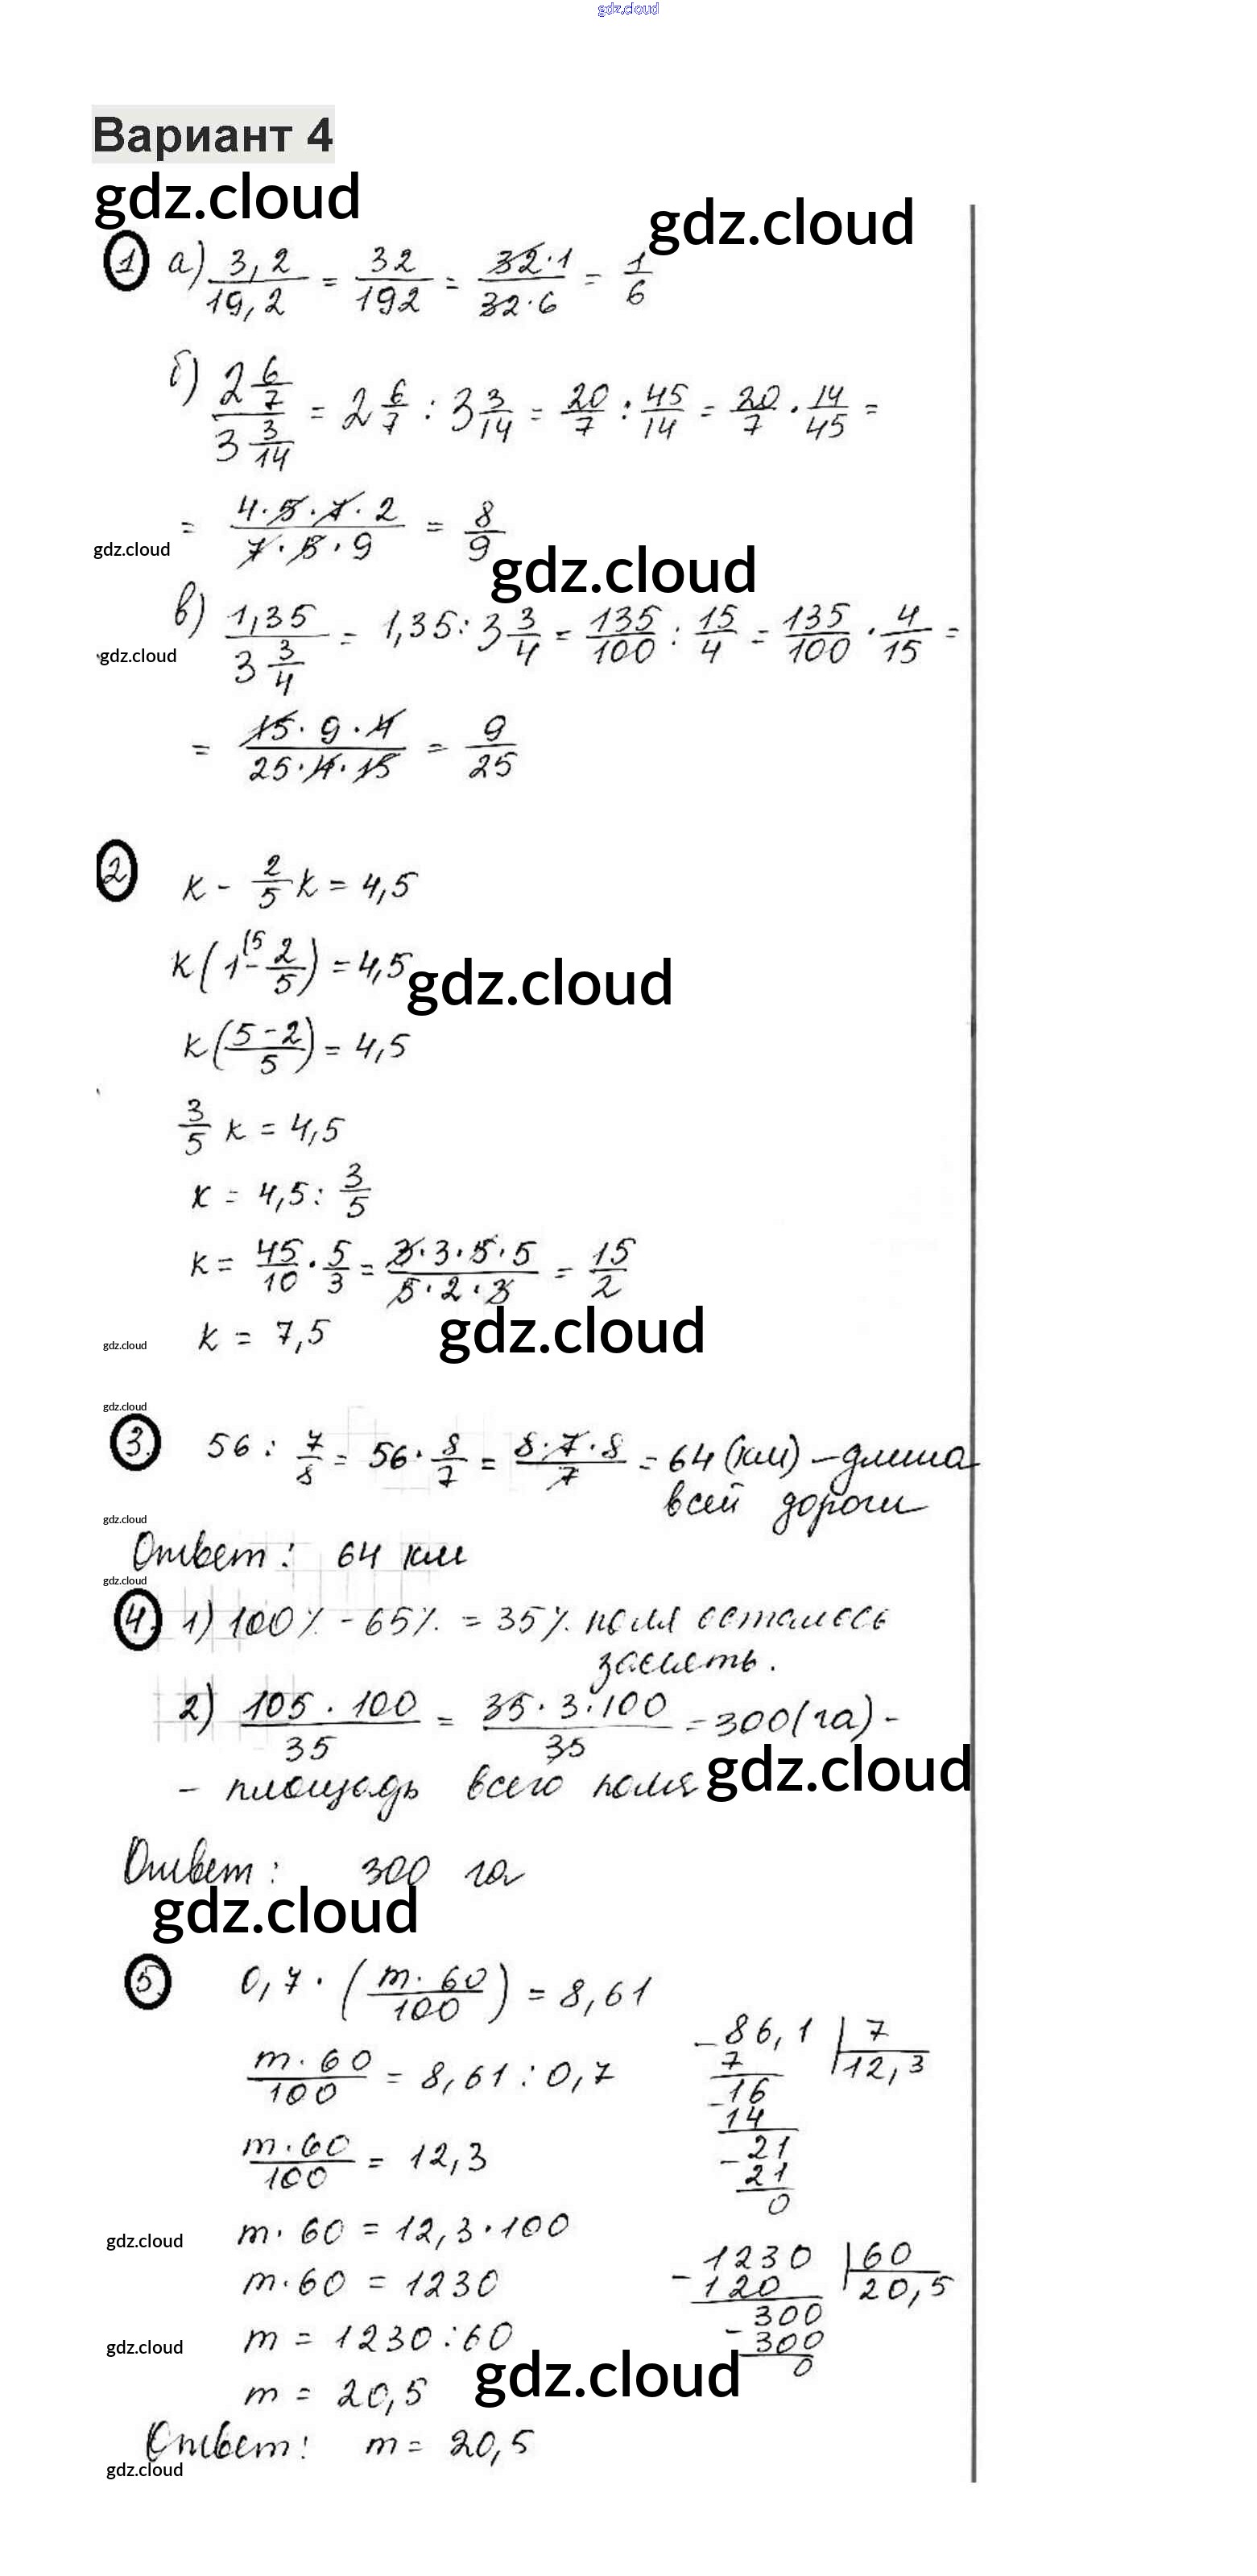 gdz.cloud
Вариант 4
gdz.cloud
gdz.cloud
1 а) 3,2/19,2 = 32/192 = 32·1/32·6 = 1/6
б) 2 6/7 / 3 3/14 = 2 6/7 : 3 3/14 = 20/7 : 45/14 = 20/7 · 14/45 =
= 4·5·7·2/7·5·9 = 8/9
gdz.cloud
gdz.cloud
в) 1,35 / 3 3/4 = 1,35 : 3 3/4 = 135/100 : 15/4 = 135/100 · 4/15 =
gdz.cloud
= 15·9·4/25·4·15 = 9/25
2 k - 2/5 k = 4,5
k(1 (5 - 2/5) = 4,5
gdz.cloud
k(5-2/5) = 4,5
3/5 k = 4,5
k = 4,5 : 3/5
k = 45/10 · 5/3 = 3·3·5·5/5·2·3 = 15/2
k = 7,5
gdz.cloud
gdz.cloud
gdz.cloud
3. 56 : 7/8 = 56 · 8/7 = 8·7·8/7 = 64 (км) – длина
всей дороги
gdz.cloud
Ответ: 64 км
gdz.cloud
4. 1) 100% - 65% = 35% поля осталось
засеять.
2) 105·100/35 = 35·3·100/35 = 300 (га) -
- площадь всего поля
gdz.cloud
Ответ: 300 га
gdz.cloud
5. 0,7 · (m·60/100) = 8,61
m·60/100 = 8,61 : 0,7
m·60/100 = 12,3
m·60 = 12,3·100
gdz.cloud
m·60 = 1230
m = 1230 : 60
gdz.cloud
m = 20,5
gdz.cloud
Ответ: m = 20,5
gdz.cloud
- 86,1 | 7
7 | 12,3
- 16
14
- 21
21
0
- 1230 | 60
120 | 20,5
- 300
300
0